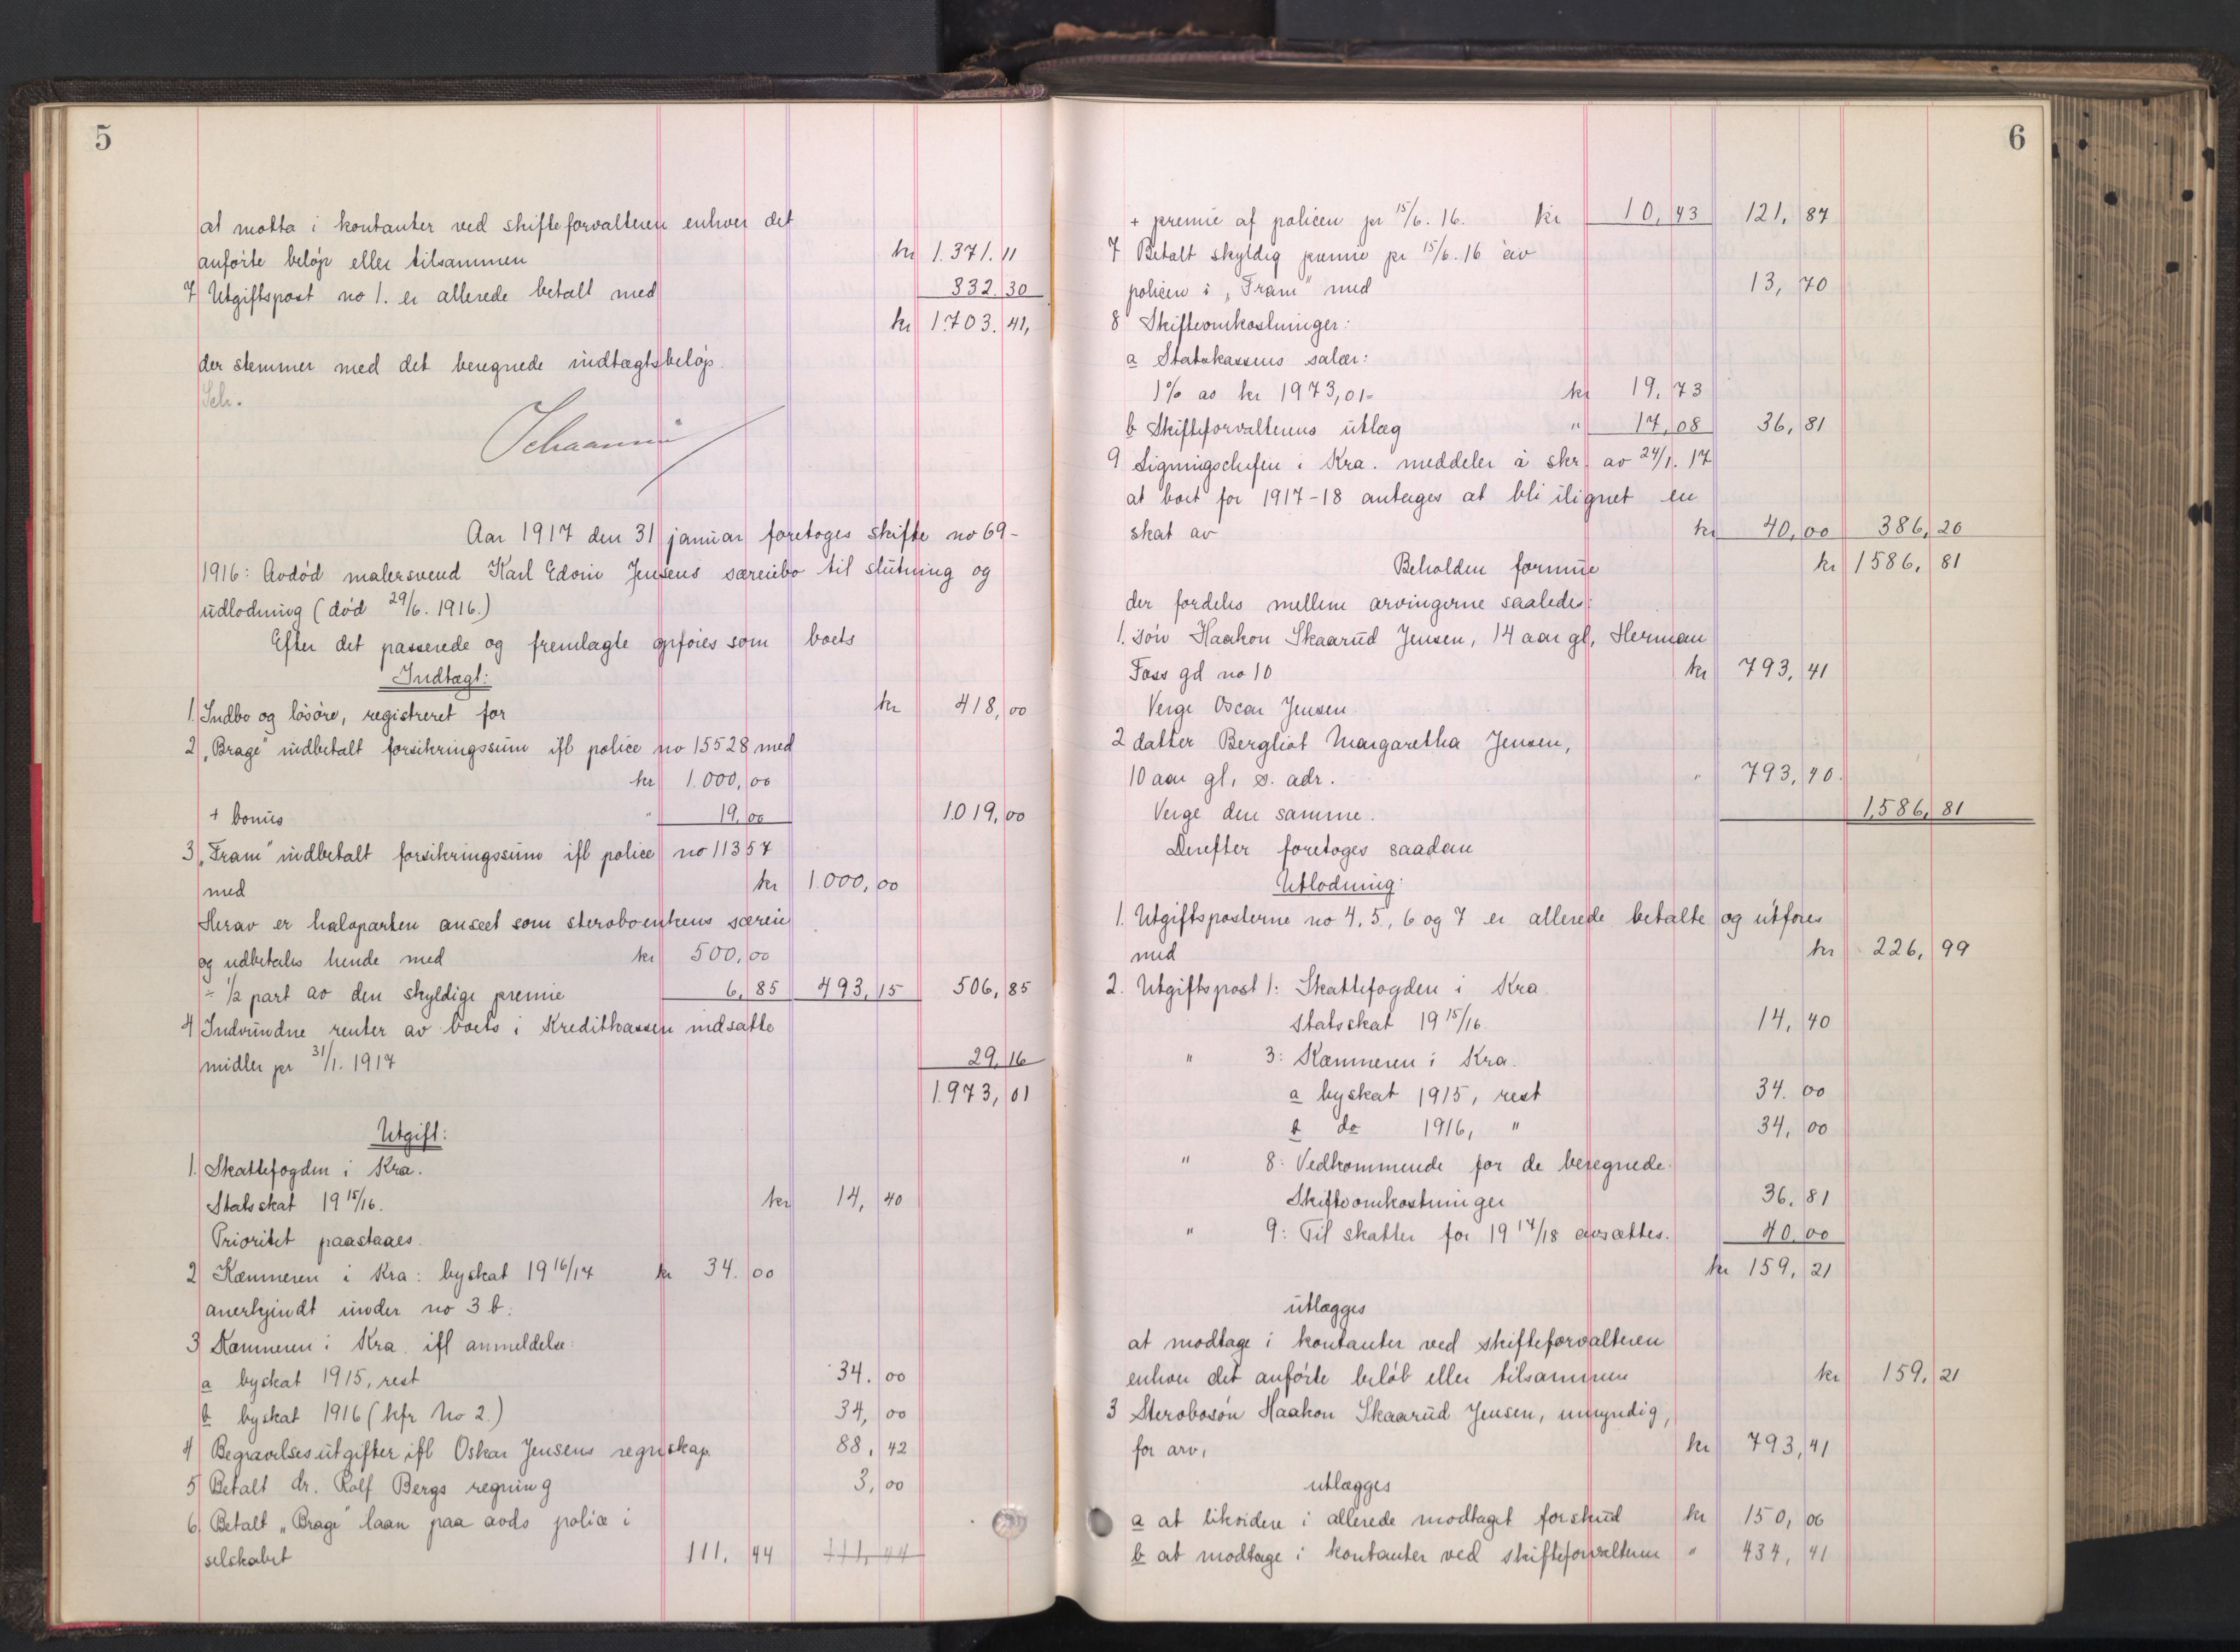 5
at motta i kontanter ved skifteforvalteren enhver det
anförte belöp eller tilsammen kr 1.371.11
7 Utgiftspost no 1. er allerede betalt med 332.30
kr 1.703.41,
der stemmer med det beregnede indtægtsbelöp.
Sch.
Aar 1917 den 31 januar foretoges skifte no 69-
1916: Avdöd malersvend Karl Edvin Jensens særeiebo til slutning og
udlodning (död 29/6. 1916.)
Efter det passerede og fremlagte opföres som boets
Indtægt:
1. Indbo og lösöre, registreret for kr 418,00
2 „Brage" indbetalt forsikringssum ifl police no 15528 med
kr 1.000,00
+ bonus " 19,00 1.019,00
3 „Fram" indbetalt forsikringssum ifl police no 11357
med kr 1.000,00
Herav er halvparten anseet som sterboenkens særeie
og udbetales hende med kr 500,00
÷ 1/2 part av den skyldige premie 6,85 493,15 506,85
4 Indvundne renter av boets i Kreditkassen indsatte
midler pr 31/1. 1917 29,16
1.973,01
Utgift:
1. Skattefogden i Kra.
Statsskat 19 15/16. kr 14,40
Prioritet paastaaes.
2 Kæmneren i Kra: byskat 19 16/17 kr 34.00
anerkjendt under no 3 b.
3 Kæmneren i Kra. ifl anmeldelse:
a byskat 1915, rest 34.00
b byskat 1916 (kfr No 2.) 34,00
4 Begravelsesutgifter ifl Oskar Jensens regnskap. 88,42
5 Betalt dr. Rolf Bergs regning 3,00
6. Betalt „Brage" laan paa avds police i
selskabet 111.44 111,44
6
+ premie af policen pr 15/6. 16. kr 10,43 121,87
7 Betalt skyldig premie pr 15/6. 16 av
policen i „Fram" med 13,70
8 Skifteomkostninger:
a Statskassens salær:
1% av kr 1973,01- kr 19,73
b Skifteforvalterens utlæg " 17,08 36,81
9 Ligningschefen i Kra. meddeler i skr. av 24/1. 17
at boet for 1917-18 antages at bli ilignet en
skat av kr 40,00 386,20
Beholden formue kr 1586,81
der fordeles mellem arvingerne saaledes:
1. sön Haakon Skaarud Jensen, 14 aar gl, Herman
Foss gd no 10 kr 793,41
Verge Oscar Jensen.
2 datter Bergliot Margaretha Jensen,
10 aar gl, s. adr. " 793,40.
Verge den samme. 1,586,81
Derefter foretoges saadan
Utlodning:
1. Utgiftsposterne no 4, 5, 6 og 7 er allerede betalte og utföres
med kr 226,99
2. Utgiftspost 1: Skattefogden i Kra.
Statsskat 19 15/16. 14,40
" 3: Kæmneren i Kra.
a byskat 1915, rest 34.00
b do 1916, " 34,00
" 8: Vedkommende for de beregnede
Skifteomkostninger 36,81
" 9: Til skatter for 19 17/18 avsættes. 40,00
kr 159,21
utlægges
at modtage i kontanter ved skifteforvalteren
enhver det anförte belöb eller tilsammen kr 159,21
3 Stervbosön Haakon Skaarud Jensen, umyndig,
for arv, kr 793,41
utlægges
a at likvidere i allerede modtaget forskud kr 150,00
b at modtage i kontanter ved skifteforvalteren " 434,41